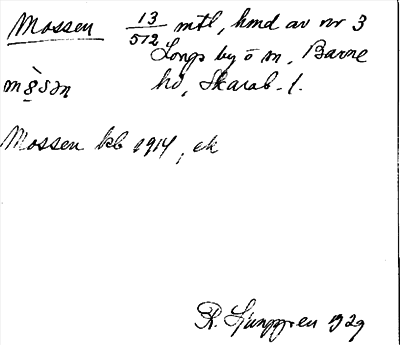 Mossen 13/512 mtl, hmd av nr 3
Longs by o m, Barne
mo̱̊̀sən hd, Skarab. l.
Mossen kb 1914, ek
R. Ljunggren 1929